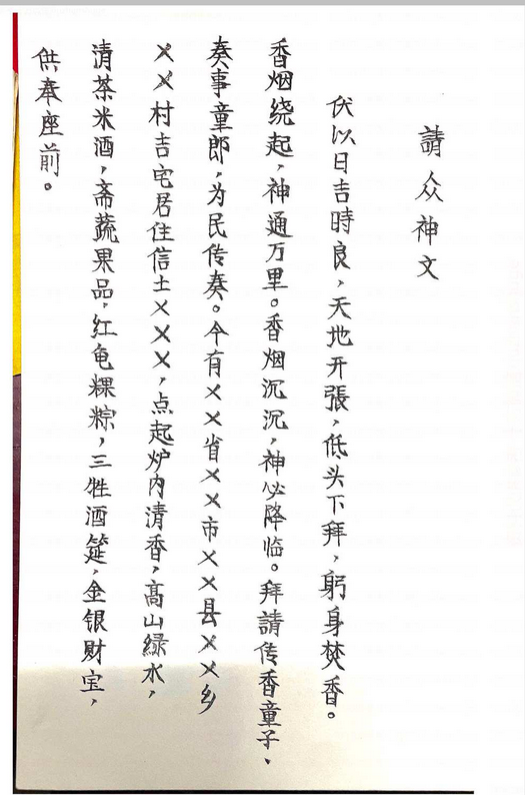 請众神文
伏以日吉時良，天地开張，低头下拜，躬身焚香。
香烟绕起，神通万里。香烟沉沉，神必降临。拜請传香童子、
奏事童郎，为民传奏。今有××省××市××县××乡
××村吉宅居住信士×××，点起炉内清香，高山緑水，
清茶米酒，斋蔬果品，红龟粿粽，三牲酒筵，金银财宝，
供奉座前。